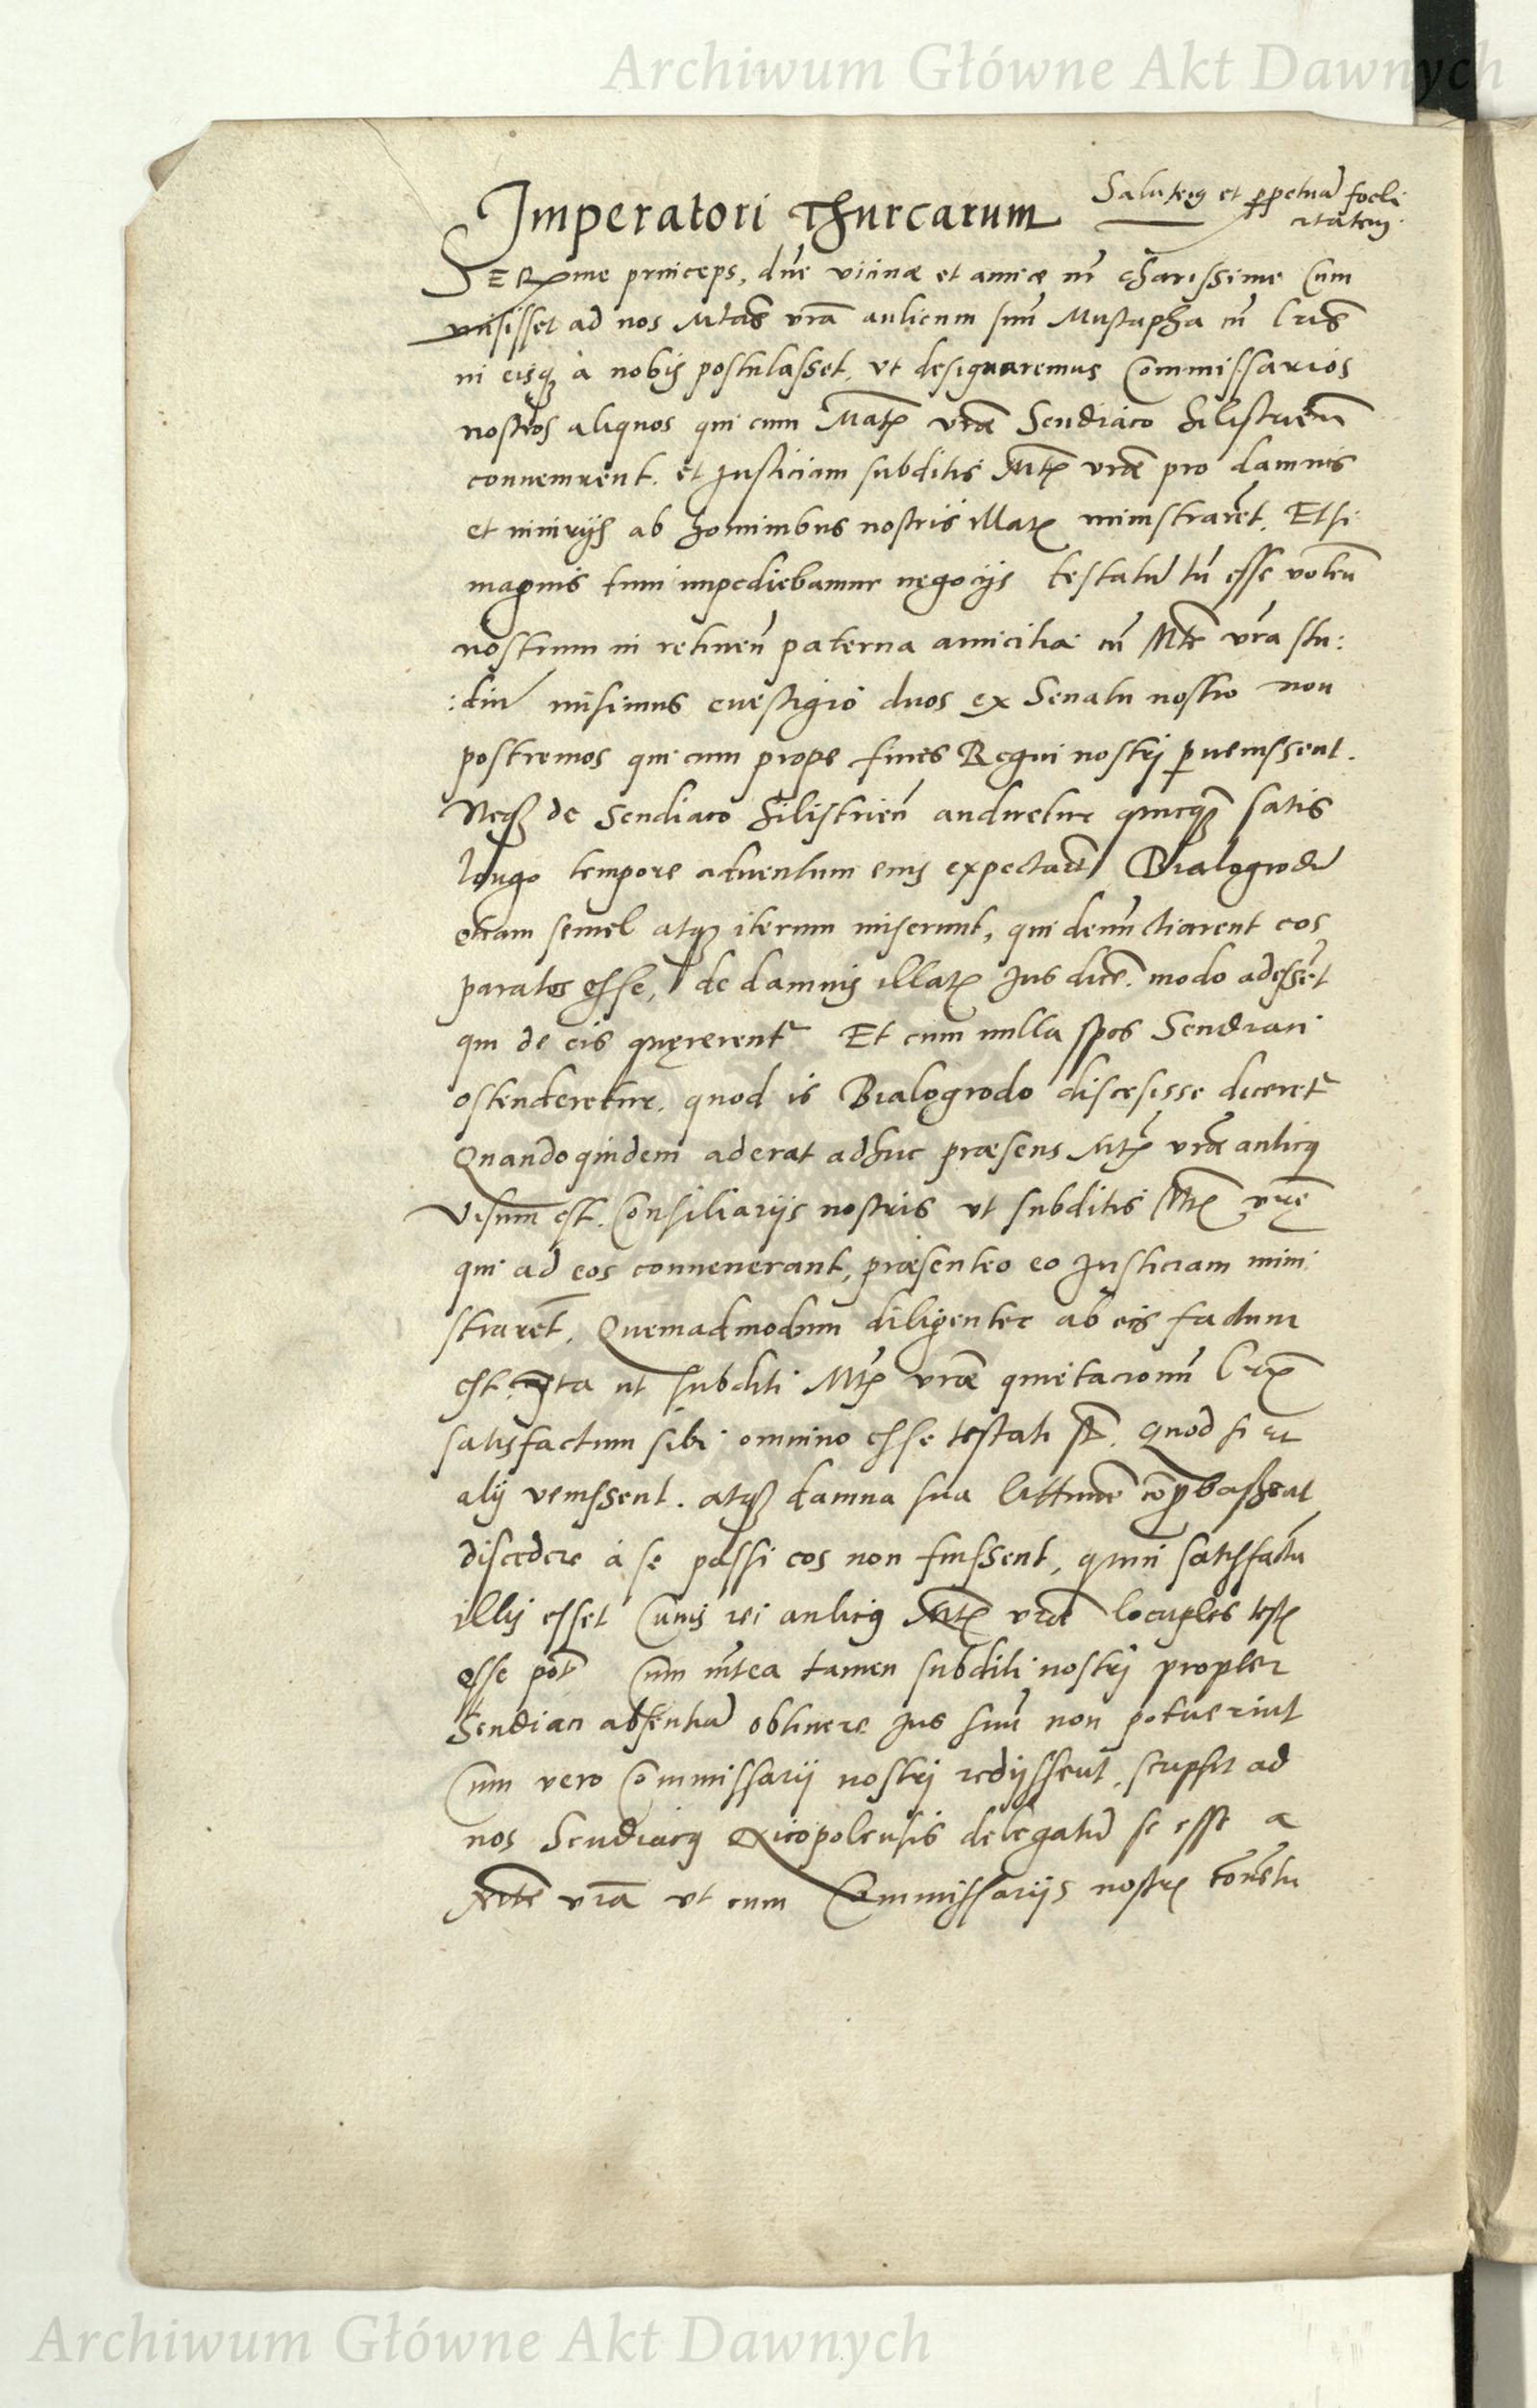 Archiwum Główne Akt Dawnych
Imperatori Thurcarum Salutem et ppetuā foeli
citatem.
SERme princeps, dn̄e vicinæ et amicæ nr̄ charissime Cum
misisset ad nos Mtas vrā aulicum suū Mustapha cū lris
in eisq; à nobis postulasset, vt designaremus Commissarios
nostros aliquos qui cum Matis vræ Sendiaco Silistrień
convenirent. et Justiciam subditis Mtis vræ pro damnis
et iniurijs ab hominibus nostris illatis ministrarēt. Etsi
magnis tum impediebamur negocijs testatū tn̄ esse volen̄
nostrum in retinen̄ paterna amicitia cū Mte vrā stu:
:diū misimus evestigio duos ex Senatu nostro non
postremos qui cum prope fines Regni nostrj pvenissent.
Neq; de Sendiaco Silistrień audiretur quicq; satis
longo tempore adventum eius expectarūt Bialogrodū
etiam semel atq; iterum miserunt, qui denūctiarent eos
paratos esse, de damnis illatis Jus dicē. modo adessēt
qui de eis quęrerent Et cum nulla spes Sendiaci
ostenderetur. quod is Bialogrodo discesisse diceret
Quandoquidem aderat adhuc præsens Mtis vræ aulicq
Visum est. Consiliarijs nostris vt subditis Mtis vrę
qui ad eos convenerant, præsente eo Justiciam mini
strarēt. Quemadmodum diligenter ab eis factum
est. Ita ut subditi Mtis vræ quietacionū lris
satisfactum sibi omnino esse testati st. Quod si et
alij venissent. atq; damna sua comprobassent
discedere à se passi eos non fuissent, quin satisfactū
illis esset Cuius rei aulicq Mtis vræ locuples testis
esse pot Cum inr̄ea tamen subditi nostrj propter
Sendiaci absentiā obtinere Jus suū non potuerint
Cum vero Commissarij nostrj redijssent, scripsit ad
nos Sendiacq Nicopolensis delegatū se esse a
Mte vrā vt cum Commissarijs nostris
Archiwum Główne Akt Dawnych